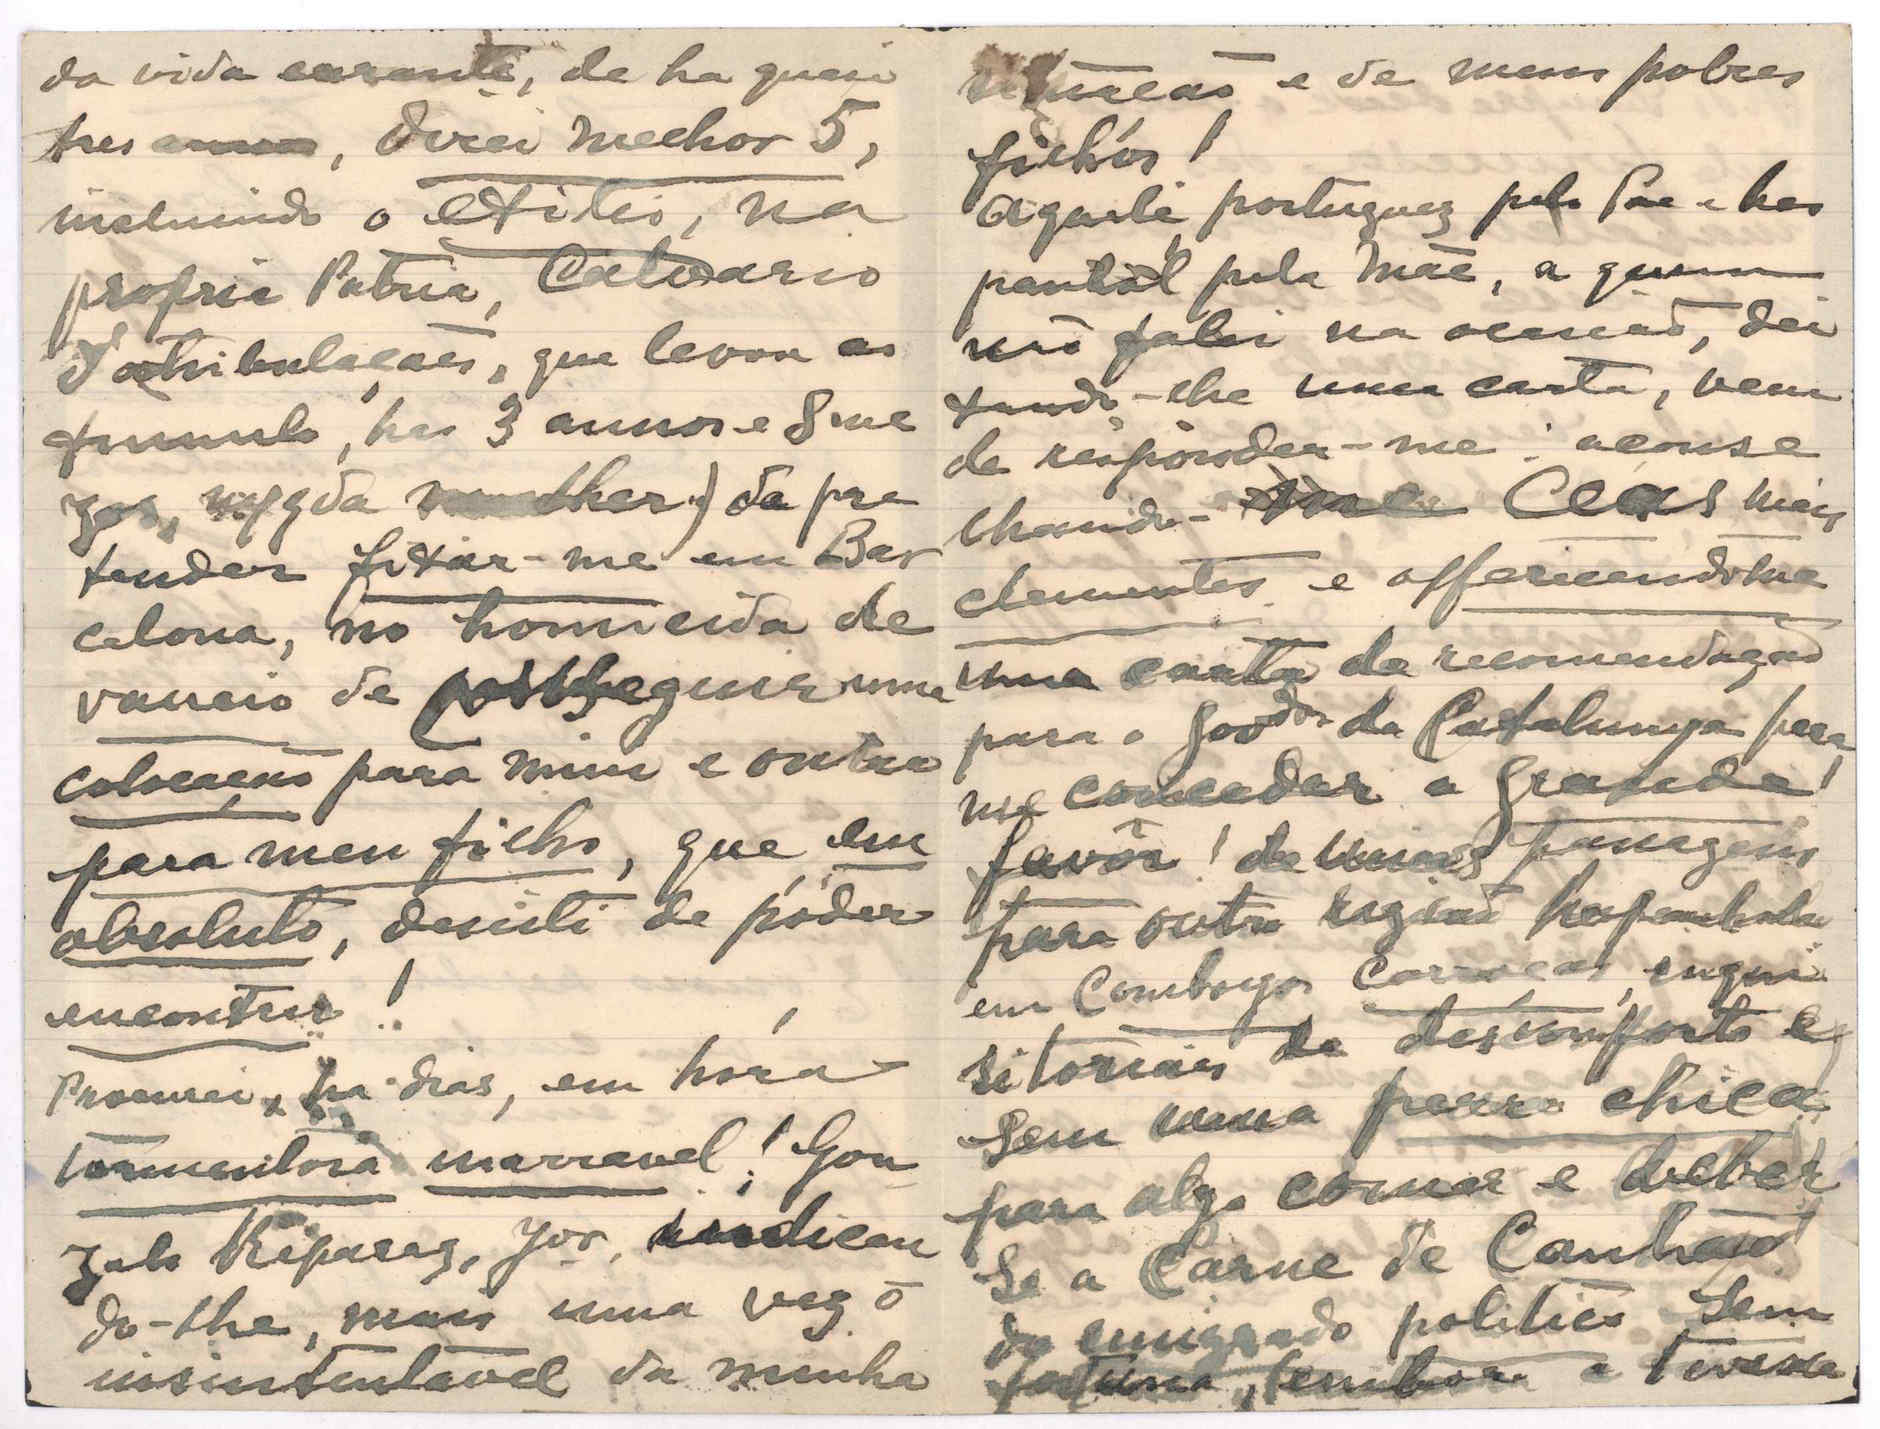 da vida errante, de ha quasi
tres annos, direi melhor 5,
incluindo o exilio, na
propria Patria, Calvario
d'atribulações, que levou ao
tumulo, ha 3 annos e 8 me
zes, da mulher) da pre
tender fixar-me em Bar
celona, no homicida de
vaneio de conseguir uma
colocação para mim e outra
para meu filho, que, em
absoluto, desisti de poder
encontrar!
Procurei, ha dias, em hora
tormentosa inarravel! Gon
zalo Réparaz, Jor, indican
do-lhe, mais uma vez o
insustentavel da minha
situação e de meus pobres
filhos!
Aquele portuguez pelo Pae e hes
panhol pela Mãe, a quem
não falei na ocasião, dei
xando-lhe uma carta, vem
de responder-me: aconse
lhando-me Ceos mais
clementes e offerecendo-me
uma carta de recomendação
para o Govdor da Catalunya para
me conceder a grande!
favôr! de umas passagens
para outra região hespanhola
em Comboyos Carroças, inqui
sitoriais de desconforto e
sem uma perra chica
para algo comer e beber
se a Carne de Canhão!
do emigrado politico sem
fortuna, embora a tivesse